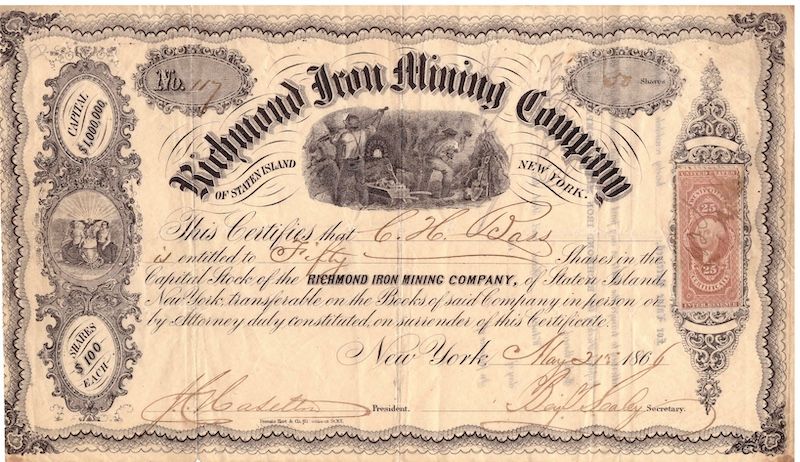 No. 117
50 Shares
CAPITAL
$1,000,000.
Richmond Iron Mining Company,
OF STATEN ISLAND
NEW YORK.
This Certifies that C. H. Bass
is entitled to Fifty Shares in the
Capital Stock of the RICHMOND IRON MINING COMPANY, of Staten Island
New York, transferable on the Books of said Company in person or
by Attorney duly constituted, on surrender of this Certificate.
SHARES
$100
EACH
25
25
CERTIFICATE
INTER REVENUE
New York, May 21st 1866
President.
Secretary.